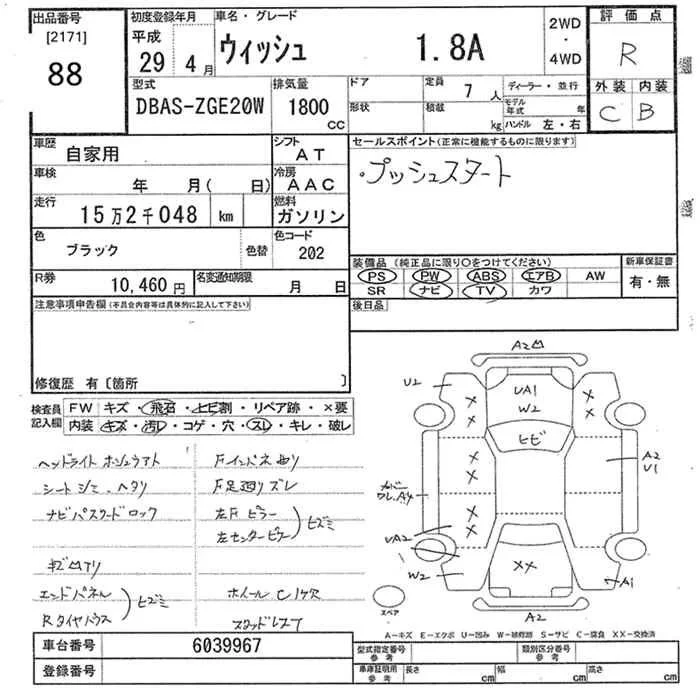 出品番号
[2171]
88
初度登録年月
平成
29年 4月
車名・グレード
ウィッシュ 1.8A
2WD
・
4WD
評価点
R
外装 内装
C B
型式
DBAS-ZGE20W
排気量
1800
CC
ドア
形状
定員 7 人
積載 kg
ディーラー・並行
モデル年式 年
ハンドル 左・右
車歴
自家用
シフト
AT
セールスポイント(正常に機能するものに限ります)
・プッシュスタート
車検 年 月( 日)
冷房
AAC
走行
15万2千048 km
燃料
ガソリン
色
ブラック
色替
色コード
202
装備品(純正品に限り○をつけてください)
PS PW ABS エアB AW
SR ナビ TV カワ
新車保証書
有・無
R券
10,460円
名変通知期限
月 日
後日品
注意事項申告欄(不具合内容等は具体的に記入して下さい)
修復歴 有〔箇所 〕
検査員記入欄
FW キズ・飛石・ヒビ割・リペア跡・×要
内装 キズ・汚レ・コゲ・穴・スレ・キレ・破レ
シート シミ、ヘタリ
ナビパスワードロック
エンドパネル
Rタイヤハウス
ヒズミ
F足廻リズレ
左Fピラー
左センターピラー
ヒズミ
A2凹
U2
UA1
W2
ヒビ
××
××
××
××
A2
U1
UA2
W2
××
A1
A2
スペア
A-キズ E-エクボ U-凹み W-補修跡 S-サビ C-腐食 XX-交換済
車台番号
6039967
登録番号
型式指定番号
参考
類別区分番号
参考
車庫証明用
参考
長さ cm
幅 cm
高さ cm